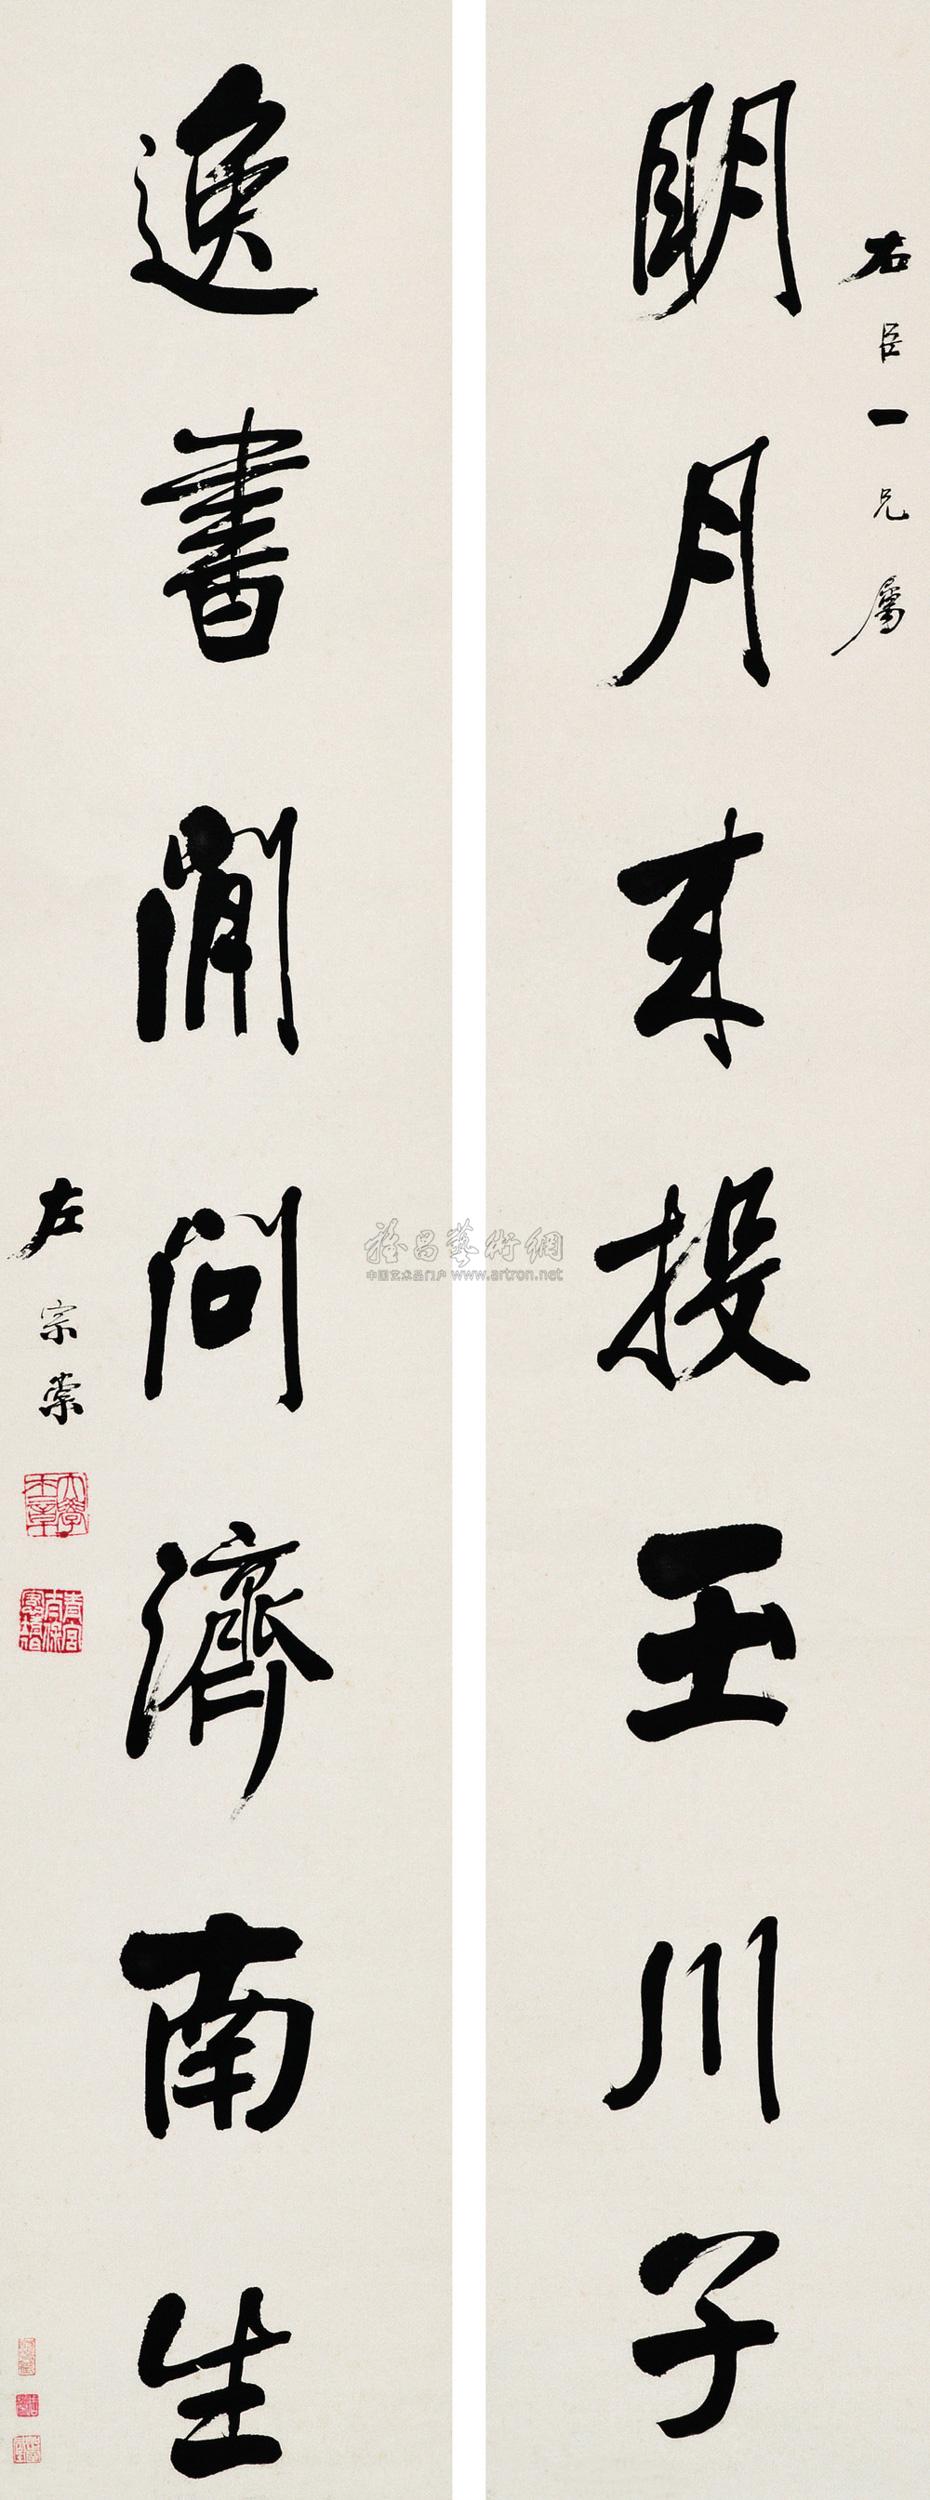 右臣一兄屬
明月來投玉川子
逸書閒問濟南生
左宗棠
大學士章
青宮太保恪靖侯
雅昌藝術網
中国艺术品门户 www.artron.net